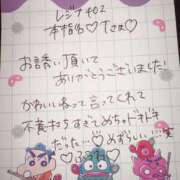 レジナ402
本指名♡Tさま♡
お誘い頂いて
ありがとうございました!
かわいいねって言ってくれて
不意打ちすぎてめちゃドキドキ
だった…♡めずらしい♡笑